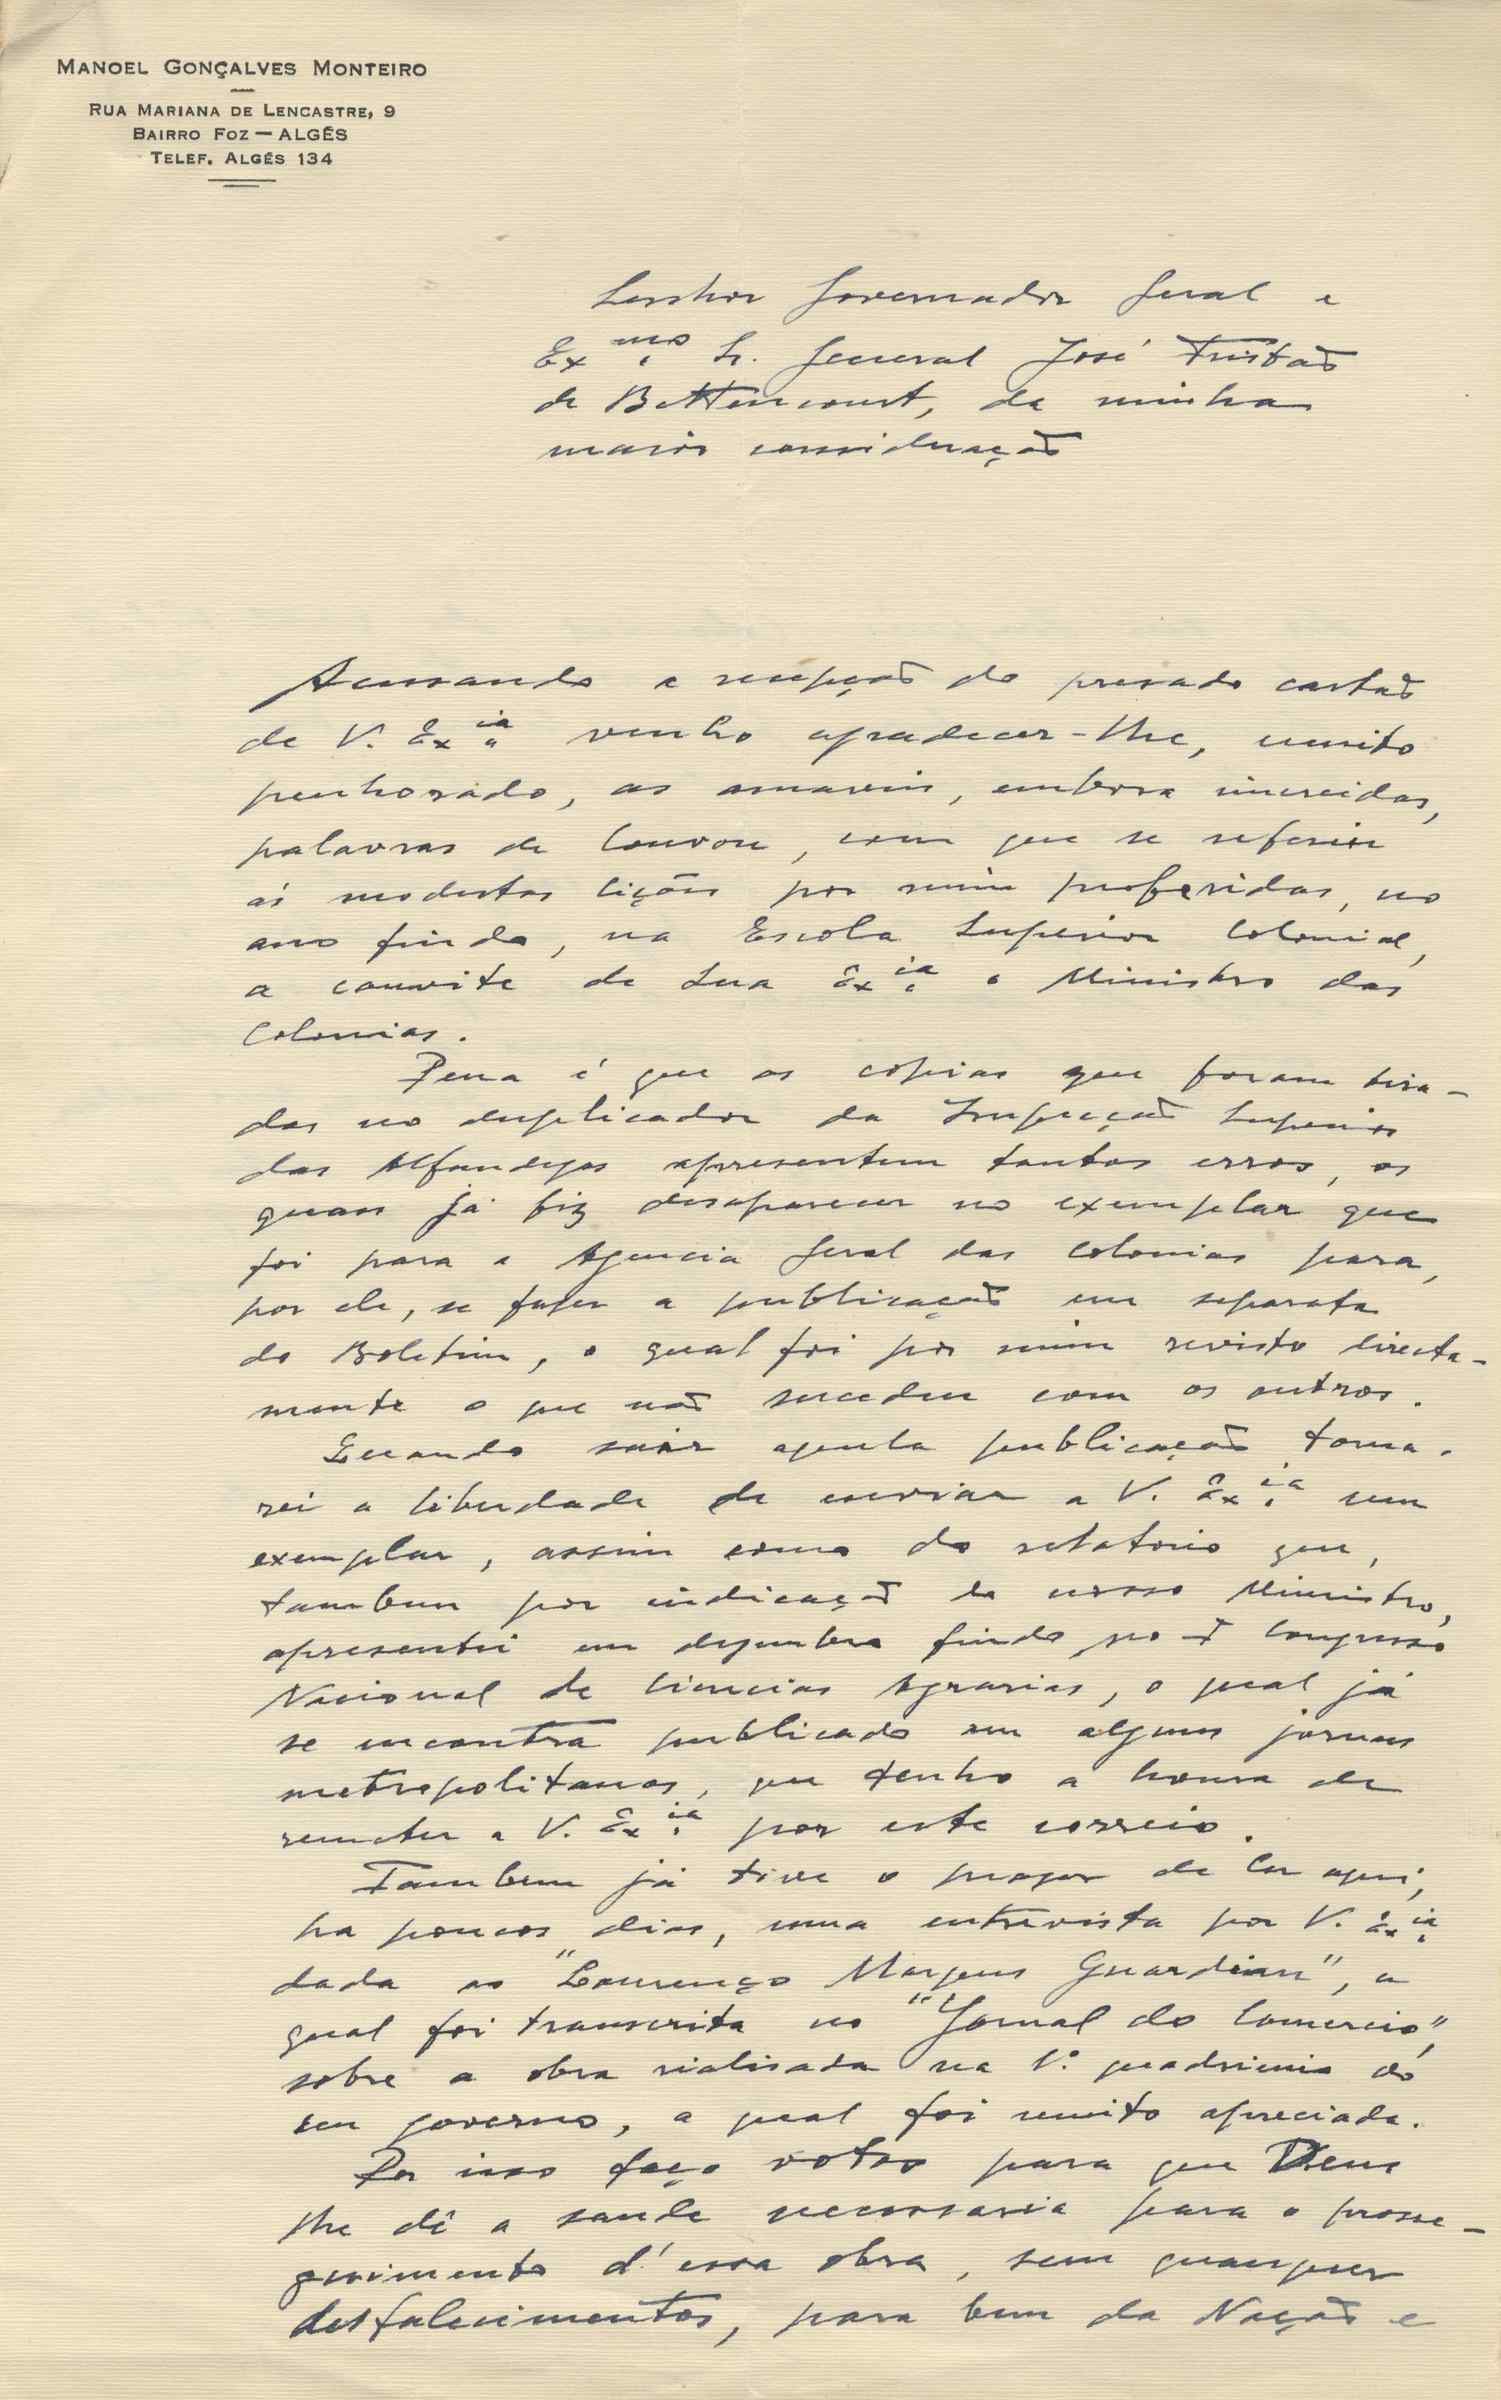 MANOEL GONÇALVES MONTEIRO
RUA MARIANA DE LENCASTRE, 9
BAIRRO FOZ — ALGÉS
TELEF. ALGÉS 134
Senhor Governador Geral e
Exmo. Sr. General José Tristão
de Bettencourt, da minha
maior consideração
Acusando a recepção do presado cartão
de V. Exia. venho agradecer-lhe, muito
penhorado, as amaveis, embora imerecidas,
palavras de louvor, com que se referiu
ás modestas lições por mim proferidas, no
ano findo, na Escola Superior Colonial,
a convite de Sua Exia. o Ministro das
Colonias.
Pena é que as copias que foram tira-
das no duplicador da Inspeção Superior
das Alfandegas apresentem tantos erros, os
quaes já fiz desaparecer no exemplar que
foi para a Agencia Geral das Colonias para,
por ele, se fazer a publicação em separata
do Boletim, o qual foi por mim revisto directa-
mente o que não sucedeu com os outros.
Quando sair aquela publicação toma-
rei a liberdade de enviar a V. Exia. um
exemplar, assim como do relatorio que,
tambem por indicação do nosso Ministro,
apresentei em dezembro findo no I Congresso
Nacional de Ciencias Agrarias, o qual já
se encontra publicado em alguns jornaes
metropolitanos, que tenho a honra de
remeter a V. Exia. por este correio.
Tambem já tive o prazer de ler aqui,
ha poucos dias, uma entrevista por V. Exia.
dada ao "Lourenço Marques Guardian", a
qual foi transcrita no "Jornal do Comercio",
sobre a obra rialisada na 1.º quadrienio do
seu governo, a qual foi muito apreciada.
Por isso faço votos para que Deus
lhe dê a saude necessaria para o prosse-
guimento d'essa obra, sem quaesquer
desfalecimentos, para bem da Nação e